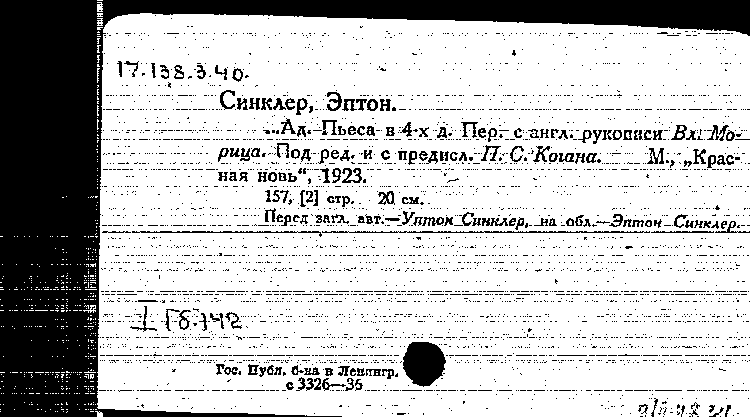 17.138.3.40.
Синклер, Эптон.
...Ад. Пьеса в 4-х д. Пер. с англ. рукописи Вл. Мо-
рица. Под ред. и с предисл. П. С. Когана. М., „Крас-
ная новь“, 1923.
157, [2] стр. 20 см.
Перед загл. авт.—Уптон Синклер, на обл.—Эптон Синклер.
I Гб.142
Гос. Публ. б-ка в Ленингр.
с 3326—36